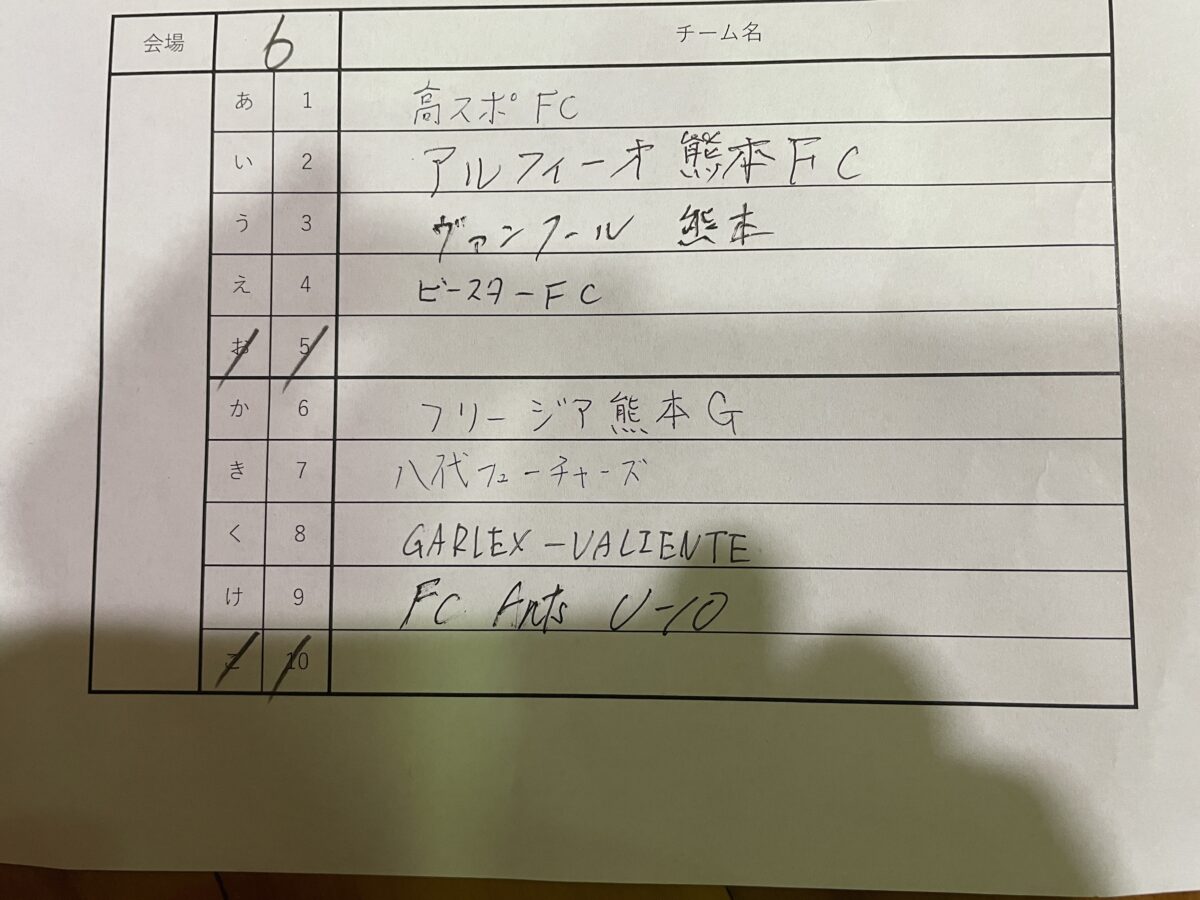 会場 6 チーム名
あ 1 高スポFC
い 2 アルフィーオ熊本FC
う 3 ヴァンクール 熊本
え 4 ビースターFC
お 5
か 6 フリージア熊本G
き 7 八代フューチャーズ
く 8 GARLEX-VALIENTE
け 9 FC Ants U-10
こ 10